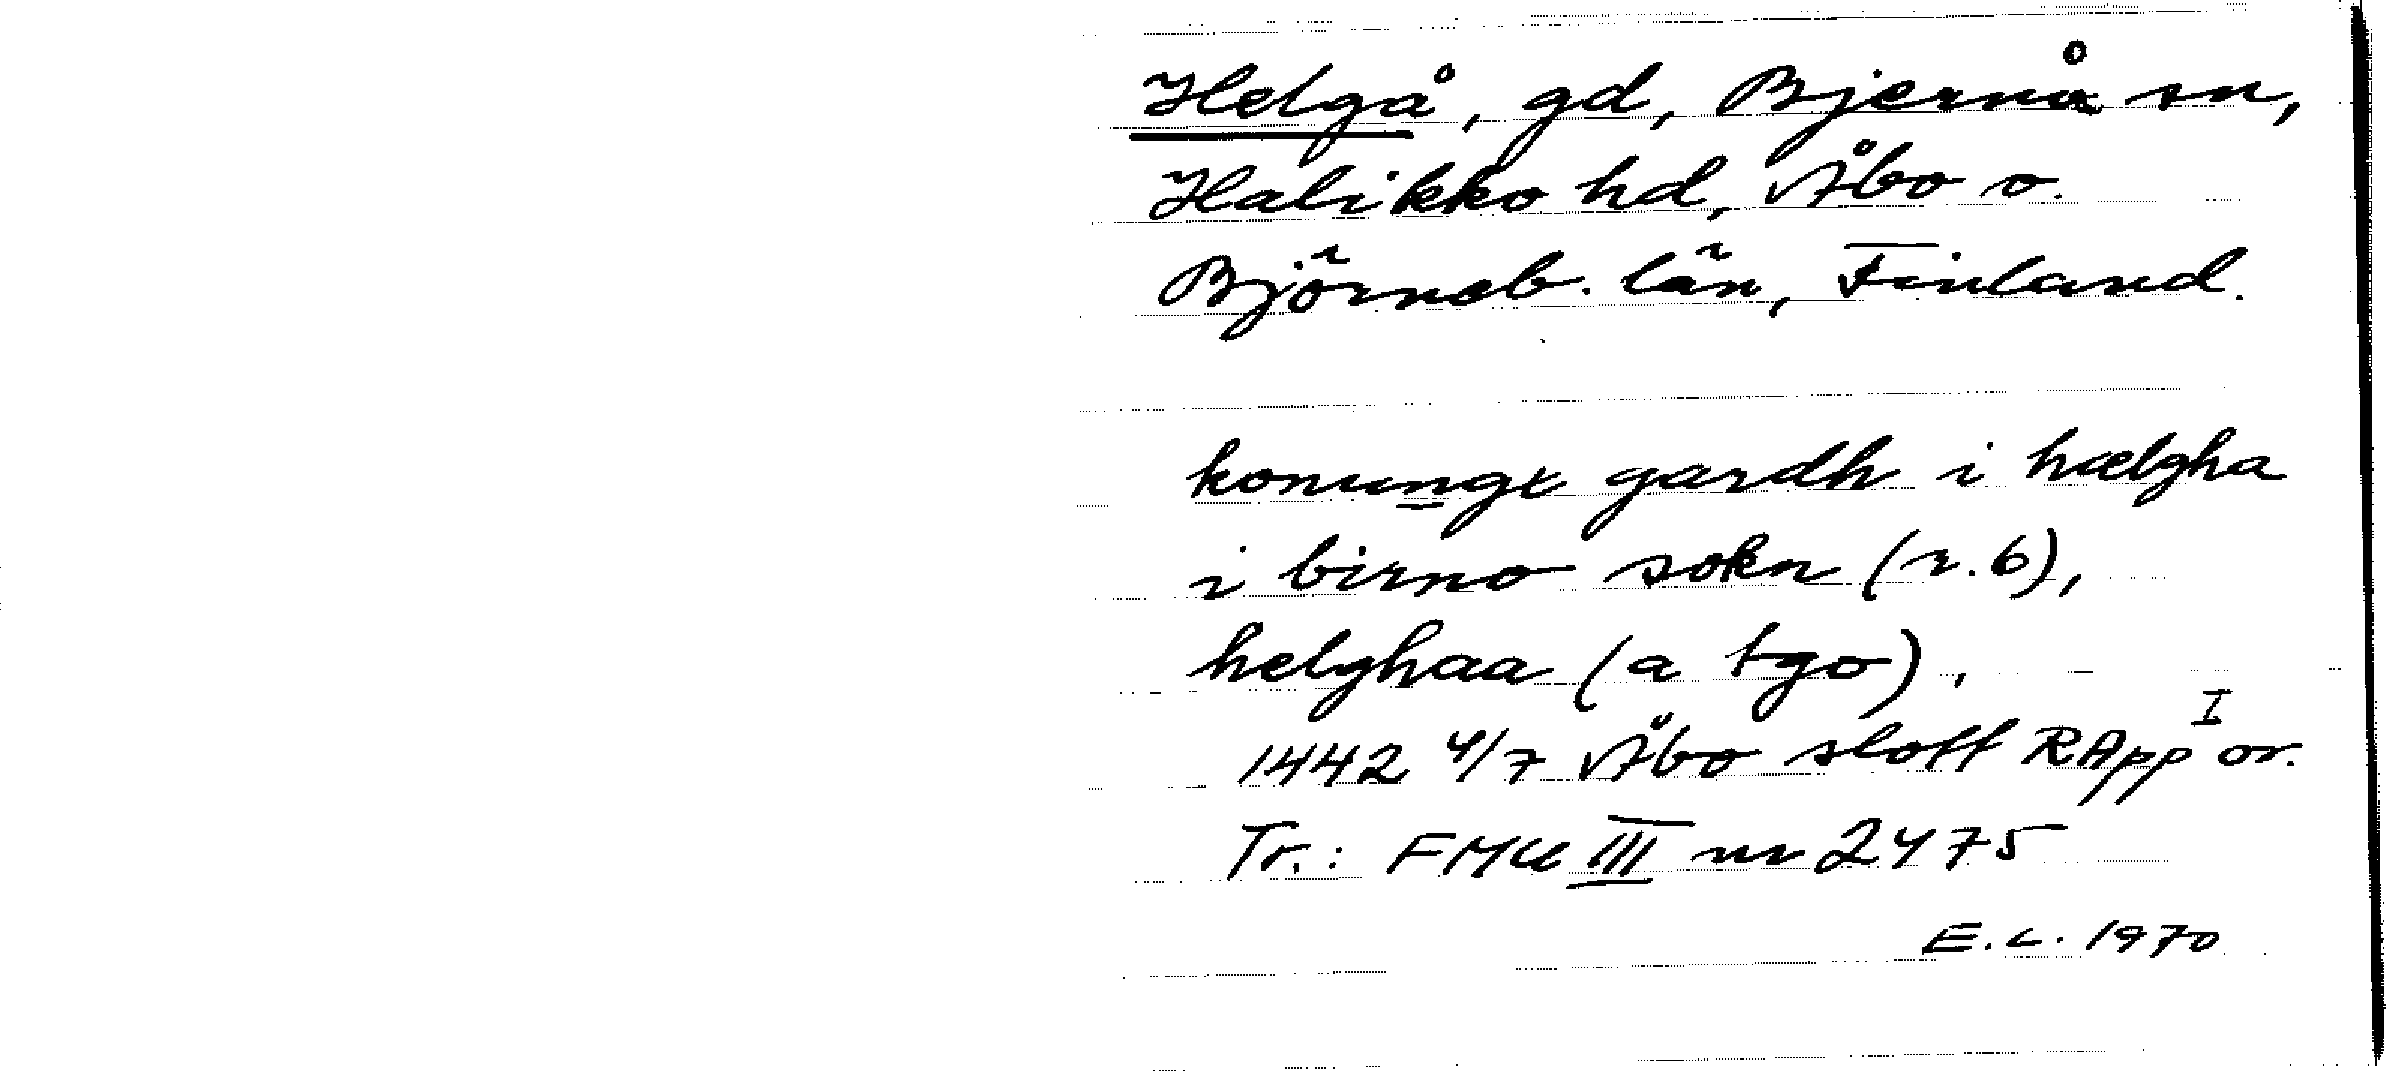 Helgå, gd, Bjernå sn,
Halikko hd, Åbo o.
Björneb. län, Finland.
konungx gardh i hælgha
i birno sokn (r. 6),
helghaa (a tgo),
1442 4/7 Åbo slott RApp I or.
Tr.: FMU III nr 2475
E. L. 1970